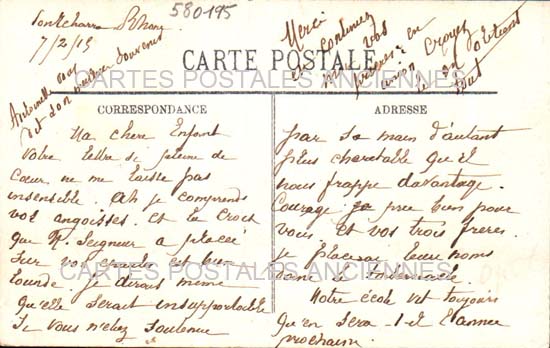 Pontcharra s/Rhone
7/2/15
580195
Merci
et continuez
vos
prières en
Croyez
le on obtient
tout
CARTE POSTALE
CARTES POSTALES ANCIENNES
Antoinette vous
dit son meilleur souvenir
CORRESPONDANCE
ADRESSE
Ma chere Enfant
Votre lettre si pleine de
Cœur ne me laisse pas
insensible. Ah je comprends
vos angoisses. et la Croix
que N. Seigneur a placée
sur vos épaules est bien
lourde. je dirais meme
Qu'elle serait insupportable
Si Vous n'etiez Soutenue
par Sa main d'autant
plus charitable qu'il
nous frappe davantage.
Courage. je prie bien pour
vous. et vos trois freres.
je placerai leurs noms
dans
Notre école vit toujours
Qu'en sera-t-il l'année
prochaine.
CARTES POSTALES ANCIENNES